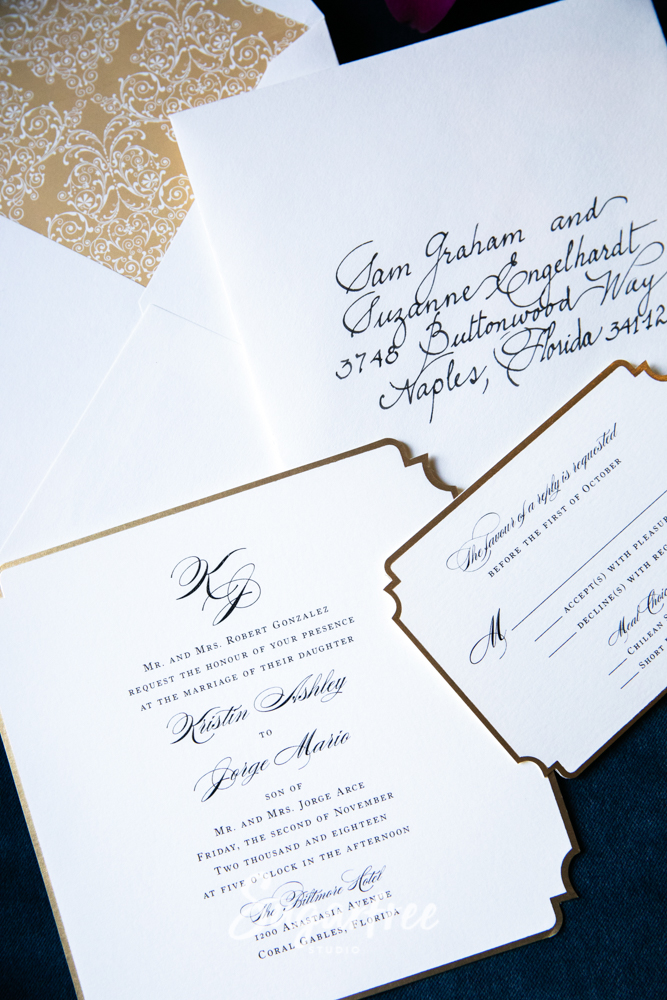 Sam Graham and
Suzanne Engelhardt
3748 Buttonwood Way
Naples, Florida 34112
The favour of a reply is requested
BEFORE THE FIRST OF OCTOBER
M
ACCEPT(S) WITH PLEASUR
DECLINE(S) WITH REG
Meal Choic
CHILEAN S
SHORT
KJ
MR. AND MRS. ROBERT GONZALEZ
REQUEST THE HONOUR OF YOUR PRESENCE
AT THE MARRIAGE OF THEIR DAUGHTER
Kristin Ashley
TO
Jorge Mario
SON OF
MR. AND MRS. JORGE ARCE
FRIDAY, THE SECOND OF NOVEMBER
TWO THOUSAND AND EIGHTEEN
AT FIVE O'CLOCK IN THE AFTERNOON
The Biltmore Hotel
1200 ANASTASIA AVENUE
CORAL GABLES, FLORIDA
STUDIO